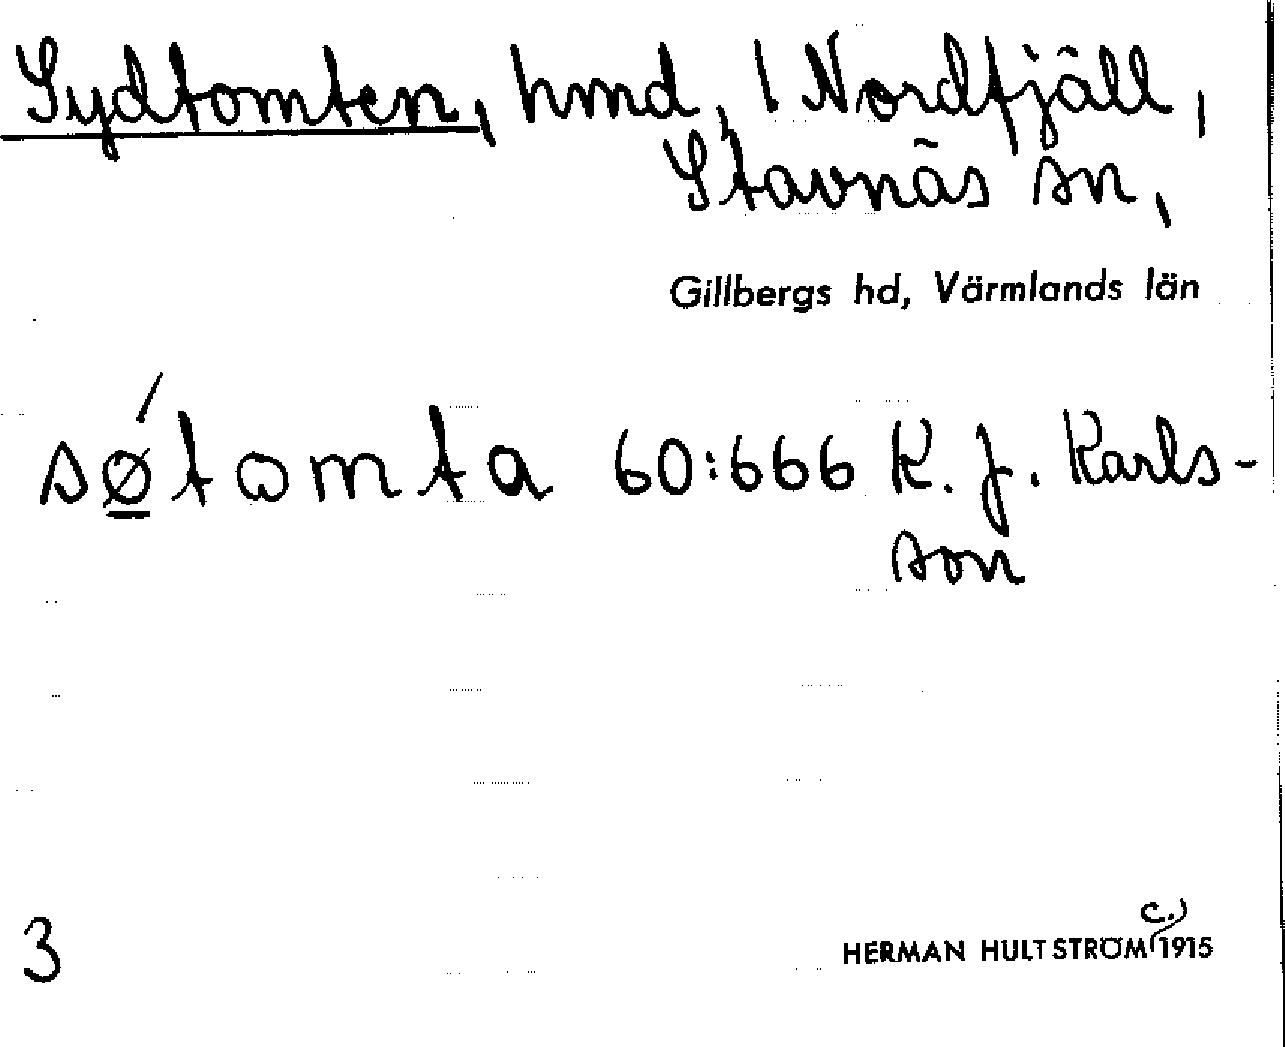 Sydtomten, hmd, 1 Nordfjäll,
Stavnäs sn,
Gillbergs hd, Värmlands län
sǿ̲tωmta 60:666 K. J. Karls-
son
3
HERMAN HULTSTRÖM (c.) 1915